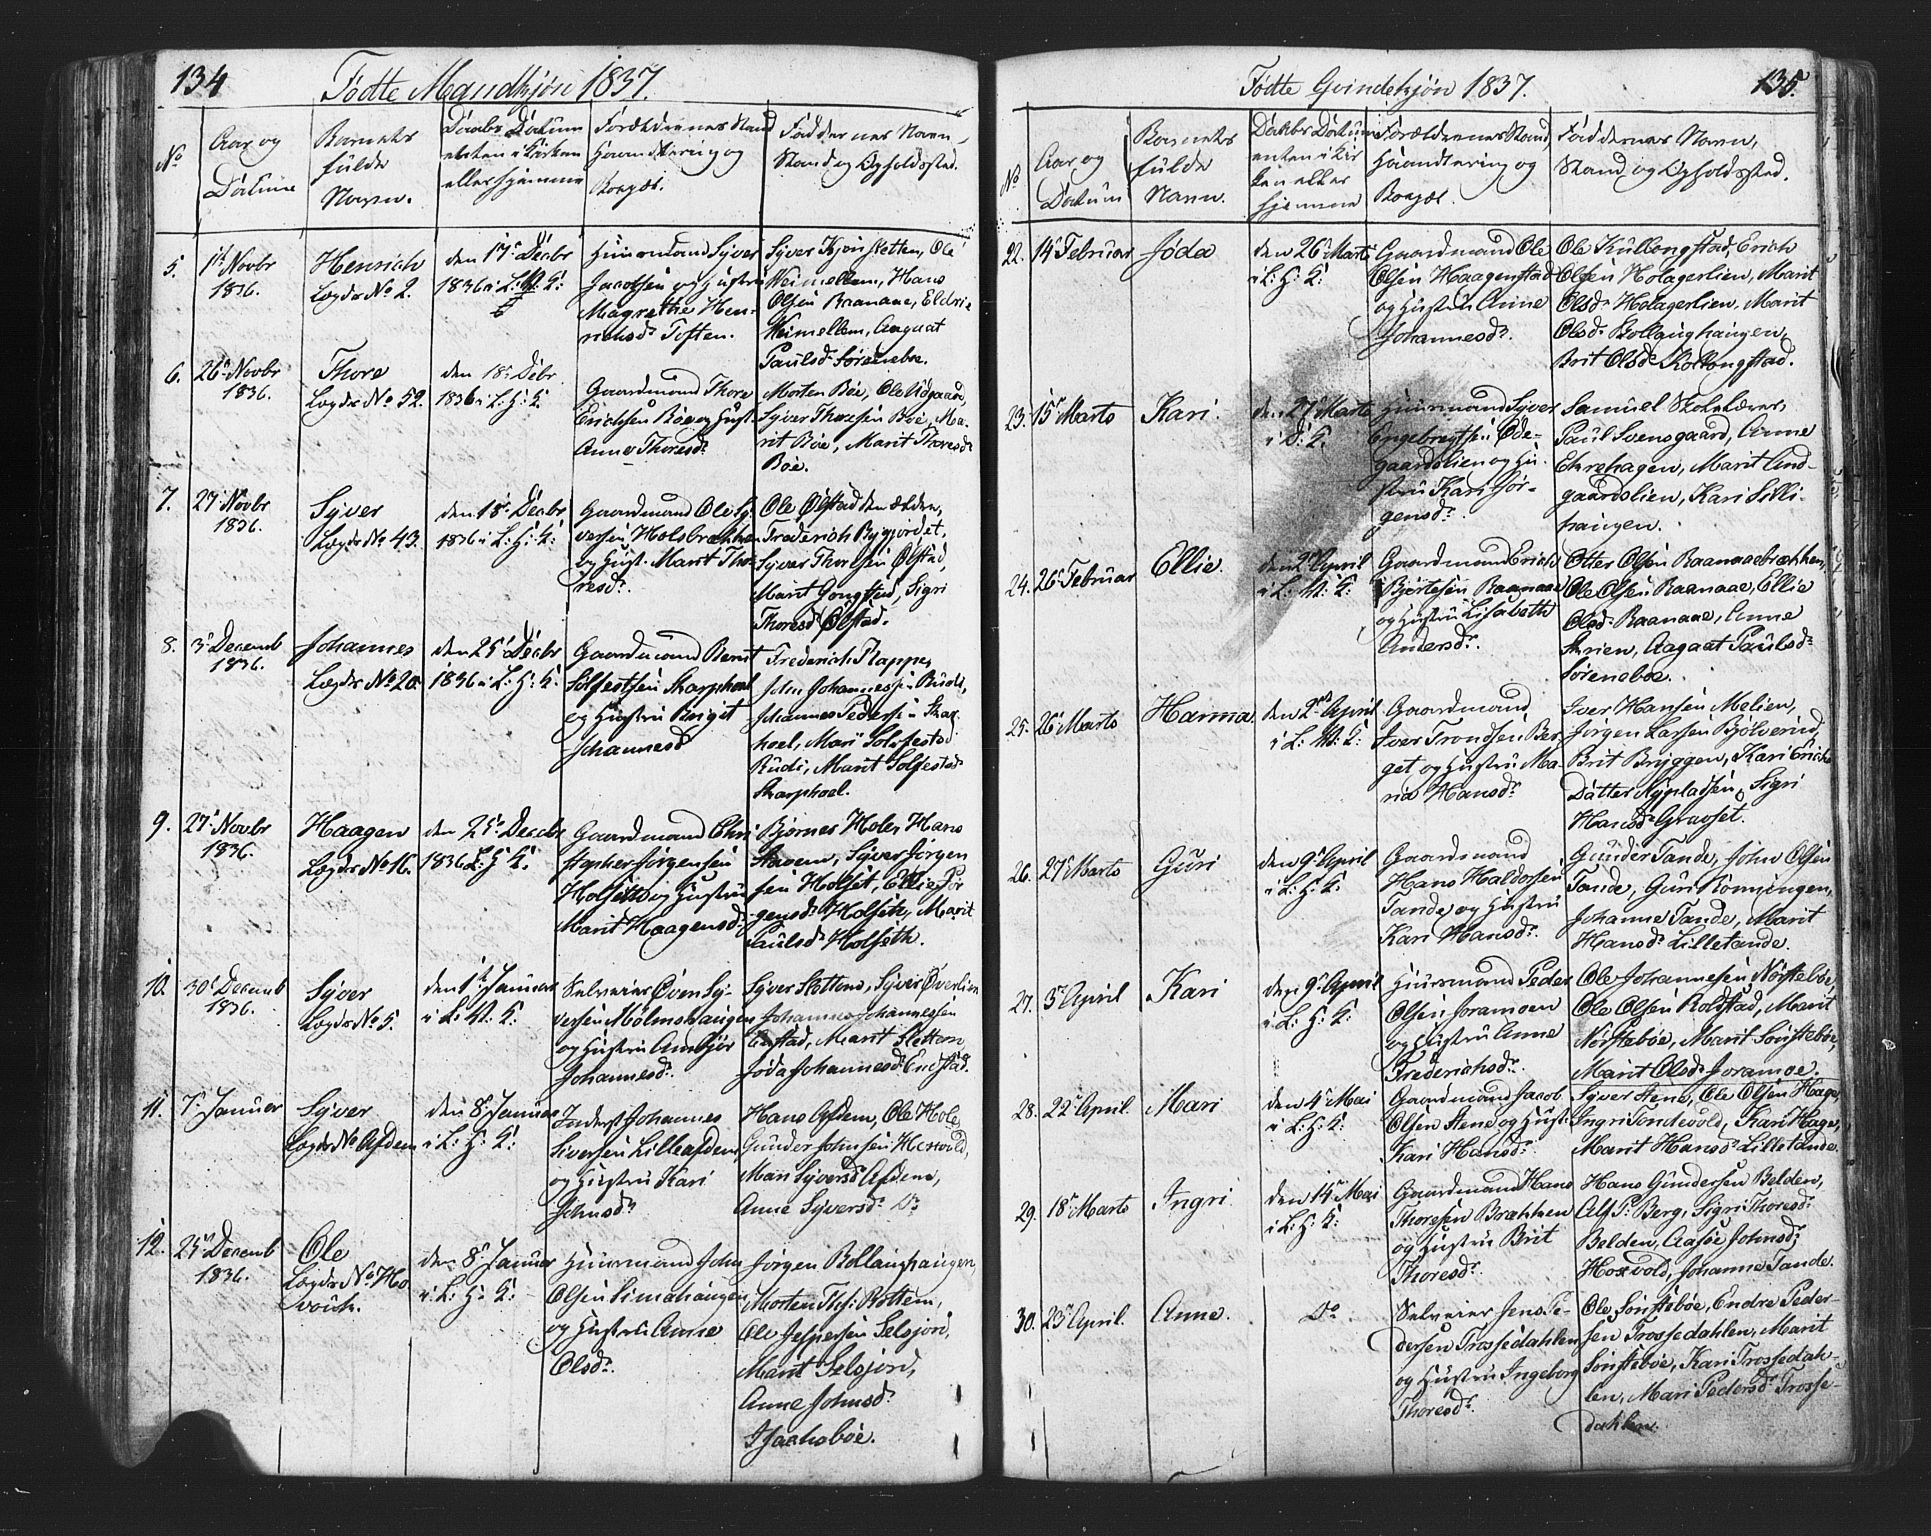 134
Fødte Mandkjøn 1837.
No
Aar og
Datum
Barnets
fulde
Navn.
Daabs Datum
enten i Kirken
eller hjemme
Forældrenes Stand
Haandtering og
Bopæl.
Faddernes Navn,
Stand og Opholdssted.
5.
1te Novbr
1836.
Henrich
Lægds No 2.
den 17de Decbr
1836 i L: H: K:
Huusmand Syver
Jacobsen og Hustru
Magrethe Hen-
richsdr Toften.
Syver Kjonsletten, Ole
Neimellem, Hans
Olsen Baanaae, Eldri
Neimellem, Aagaat
Paulsdr Sørenebøe.
6.
26de Novbr
1836.
Thore
Lægds No 52.
den 18de Debr
1836 i L: H: K:
Gaardmand Thore
Erichsen Bøe og Hust:
Anne Thoresdr
Morten Bøe, Ole Udgaard,
Syver Thoresen Bøe, Ma-
rit Bøe, Marit Thoresdr
Bøe.
7.
27de Novbr
1836.
Syver
Lægds No 43.
den 18de Decbr
1836 i L: H: K:
Gaardmand Ole Sy-
versen Holsbrækken
og Hust. Marit Tho-
resdr
Ole Ølstad den ældre,
Frederich Bygjordet,
Syver Thoresen Ølstad,
Marit Gongstad, Sigri
Thoresdr Ølstad.
8.
3die Decemb
1836.
Johannes
Lægds No 20.
den 25de Decbr
1836 i L: H: K:
Gaardmand Bernt
Solfestsen Skarphoel
og Hustru Berget
Johannesd
Frederich Flappe,
John Johannessen Rudi,
Johannes Pedersen Skarp-
hoel, Mari Solfestsd
Rudi, Marit Solfestsd
Skarphoel.
9.
27de Novbr
1836.
Haagen
Lægds No 16.
den 25de Decbr
1836 L: H: K:
Gaardmand Chri
stopher Jørgensen
Holseth og Hustru
Marit Haagensdr
Bjørner Hole, Hans
Staven, Syver Jørgen
sen Holset, Ellie Jør
gensdr Holseth, Marit
Paulsdr Holseth.
10.
30de Decemb
1836.
Syver
Lægds No 5.
den 1te Januar
i L: H: K:
Selveier Øven Sy-
versen Mølmshaugen
og Hustru Ambjør
Johannesdr.
Syver Slettom, Syver Øverlien
Johannes Johannessen
Enstad, Marit Slettom
Joda Johannesdr Endstad.
11.
7de Januar
Syver
Lægds No Afdem
den 8de Januar
i L: H: K:
Inderst Johannes
Siversen Lilleafdem
og Hustru Kari
Johnsdr
Hans Afdem, Ole Hole,
Gunder Johnsen Hosvold,
Mari Syversdr Afdem,
Anne Syversdr Do
12.
25de Decemb
1836.
Ole
Lægds No Ho
voich.
den 8de Januar
i L: H: K:
Huusmand John
Olsen Limahaugen
og Hustru Anne
Olsdr.
Jørgen Bollanghaugen,
Morten Ths: Rottem,
Ole Jespersen Selsjord,
Marit Selsjord,
Anne Johnsdr
Isachsbøe.
135.
Fødte Qvindekjøn 1837.
No
Aar og
Datum
Barnets
fulde
Navn.
Daabs Datum
enten i Kir
ken eller
hjemme
Forældrenes Stand,
Haandtering og
Bopæl.
Faddernes Navn,
Stand og Opholdssted.
22.
14de Februar
Joda
den 26de Marts
i L: H: K:
Gaardmand Ole
Olsen Haagenstad
og Hustru Anne
Johannesdr.
Ole Kullongstad, Erich
Olsen Holagerlien, Marit
Olsdr Holagerlien, Marit
Olsdr Bollanghaugen,
Brit Olsdr Kollongstad.
23.
15de Marts
Kari.
den 27de Marts
i D: K:
Huusmand Syver
Engebregtsen Øde-
gaardslien og Hu-
stru Kari Jør-
gensdr.
Samuel Skolelærer,
Paul Svensgaard, Anne
Ekrehagen, Marit And-
gaardslien, Kari Lilli-
haugen.
24.
26de Februar
Ellie.
den 2den April
i L: H: K:
Gaardmand Erich
Bjørtesen Baanaae
og Hustru Lisabeth
Andersdr.
Otter Olsen Baanaaebrækken,
Ole Olsen Baanaae, Ellie
Olsdr Baanaae, Anne
Skrien, Aagaat Paulsdr
Sørenebøe.
25.
26de Marts
Hanna.
den 2den April
i L: H: K:
Gaardmand
Iver Trondsen Ber
get og Hustru Ma-
ria Hansdr.
Iver Hansen Melien,
Jørgen Larsen Bjølverud,
Brit Bryggen, Kari Erichs
Datter Nypladsen, Sigri
Hansdr Gravset.
26.
27de Marts
Guri
den 9de April
i L: H: K:
Gaardmand
Hans Haldorsen
Tande og Hustru
Kari Hansdr.
Gunder Tande, John Olsen
Tande, Guri Konningen,
Johanne Tande, Marit
Hansdr Lilletande.
27.
3die April
Kari
den 9de April
i L: H: K:
Huusmand Peder
Olsen Joramoen
og Hustru Anne
Frederichsdr.
Ole Johannesen Nørstebøe,
Ole Olsen Rolstad, Marit
Nørstebøe, Marit Sønstebøe,
Marit Olsdr Joramoe.
28.
22de April.
Mari
den 4de Mai
i L: H: K:
Gaardmand Jacob
Olsen Stene og Hust:
Kari Hansdr.
Syver Stene, Ole Olsen Hage,
Ingri Tondevold, Kari Hage,
Marit Hansdr Lilletande.
29.
18de Marts
Ingri
den 14de Mai
i L: H: K:
Gaardmand Hans
Thoresen Brækken
og Hustru Brit
Thoresdr.
Hans Gundersen Belden,
Alf P: Berg, Sigri Thoresdr
Belden, Aasøe Johnsdr
Hosvold, Johanne Tande.
30.
23de April.
Anne.
Do
Selveier Jens Pe-
dersen Trossedahlen
og Hustru Ingeborg
Thoresdr.
Ole Sønstebøe, Endre Peder-
sen Trossedahlen, Marit
Sønstebøe, Kari Trossedah-
len, Mari Pedersdr Trosse-
dahlen.